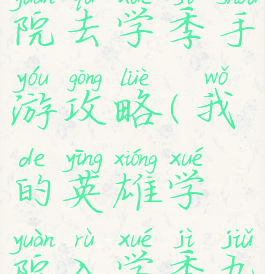 yuàn qù xué jì shǒu
院去学季手
yóu gōng lüè wǒ
游攻略(我
de yīng xióng xué
的英雄学
yuàn rù xué jì jiǔ
院入学季九